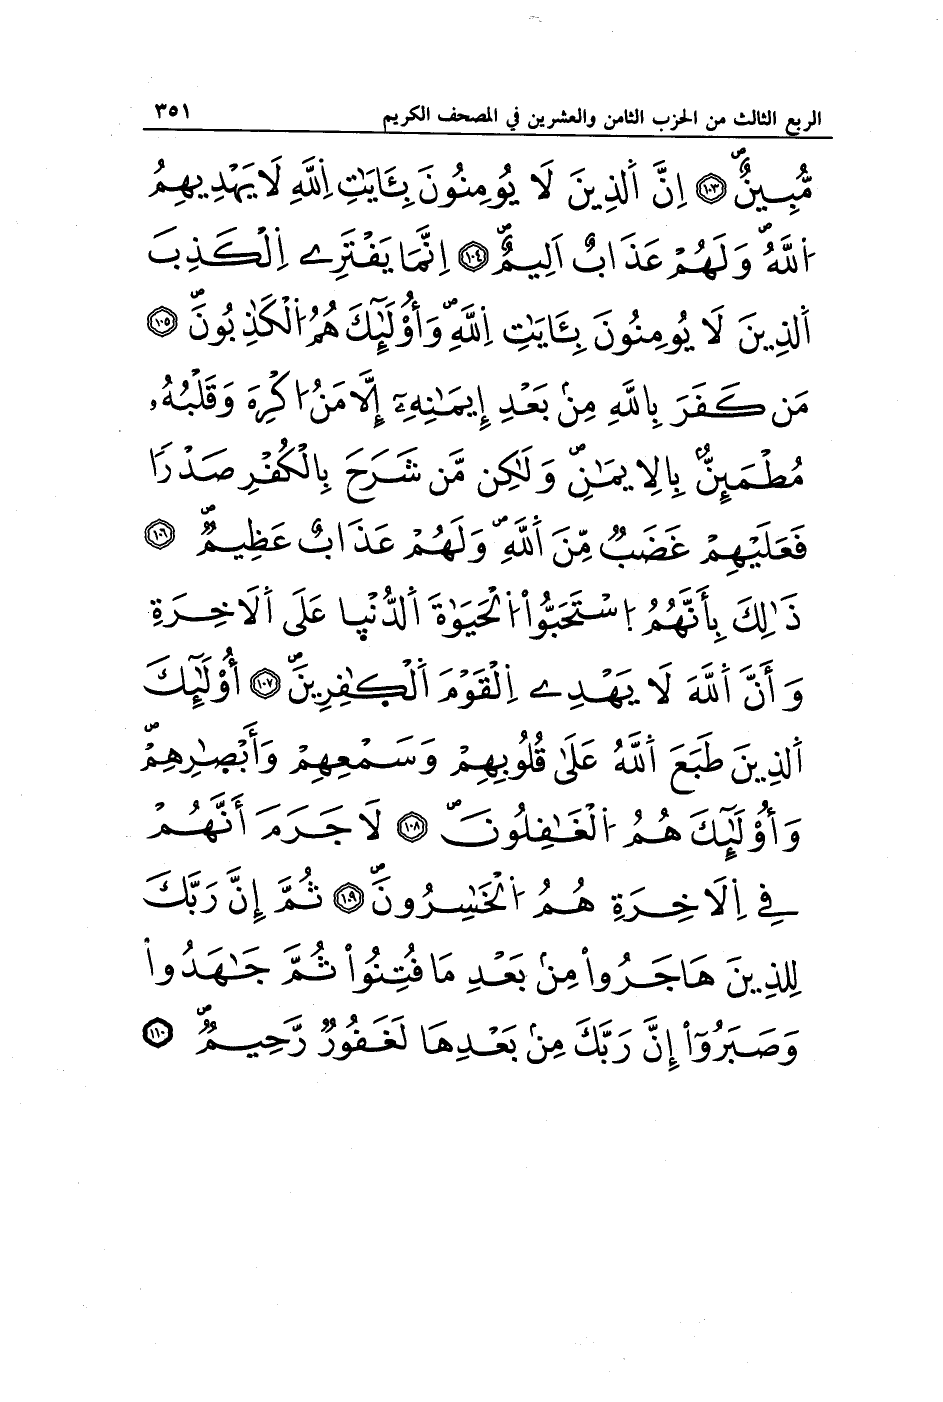 الربع الثالث من الحزب الثامن والعشرين في المصحف الكريم ٣٥١
مُّبِينٌ ١٠٣ اِنَّ اَلذِينَ لَا يُومِنُونَ بِـَٔايَٰتِ اِللَّهِ لَا يَهْدِيهِمُ
اُللَّهُ وَلَهُمْ عَذَابٌ اَلِيمٌ ١٠٤ اِنَّمَا يَفْتَرِے اِلْكَذِبَ
اَلذِينَ لَا يُومِنُونَ بِـَٔايَٰتِ اِللَّهِ وَأُوْلَٰٓئِكَ هُمُ اُلْكَٰذِبُونَ ١٠٥
مَن كَفَرَ بِاللَّهِ مِنۢ بَعْدِ إِيمَٰنِهِۦٓ إِلَّا مَنُ ا كْرِهَ وَقَلْبُهُۥ
مُطْمَئِنٌّۢ بِالِايمَٰنِ وَلَٰكِن مَّن شَرَحَ بِالْكُفْرِ صَدْرًا
فَعَلَيْهِمْ غَضَبٌ مِّنَ اَللَّهِ وَلَهُمْ عَذَابٌ عَظِيمٌ ١٠٦
ذَٰلِكَ بِأَنَّهُمُ اُ سْتَحَبُّواْ اُلْحَيَوٰةَ اَلدُّنْيٜا عَلَى اَلَاخِرَةِ
وَأَنَّ اَللَّهَ لَا يَهْدِے اِلْقَوْمَ اَلْكٰٜفِرِينَ ١٠٧ أُوْلَٰٓئِكَ
اَلذِينَ طَبَعَ اَللَّهُ عَلَىٰ قُلُوبِهِمْ وَسَمْعِهِمْ وَأَبْصٰٜرِهِمْ
وَأُوْلَٰٓئِكَ هُمُ اُلْغَٰفِلُونَ ١٠٨ لَا جَرَمَ أَنَّهُمْ
فِي اِلَاخِرَةِ هُمُ اُلْخَٰسِرُونَ ١٠٩ ثُمَّ إِنَّ رَبَّكَ
لِلذِينَ هَاجَرُواْ مِنۢ بَعْدِ مَا فُتِنُواْ ثُمَّ جَٰهَدُواْ
وَصَبَرُوٓاْ إِنَّ رَبَّكَ مِنۢ بَعْدِهَا لَغَفُورٌ رَّحِيمٌ ١١٠